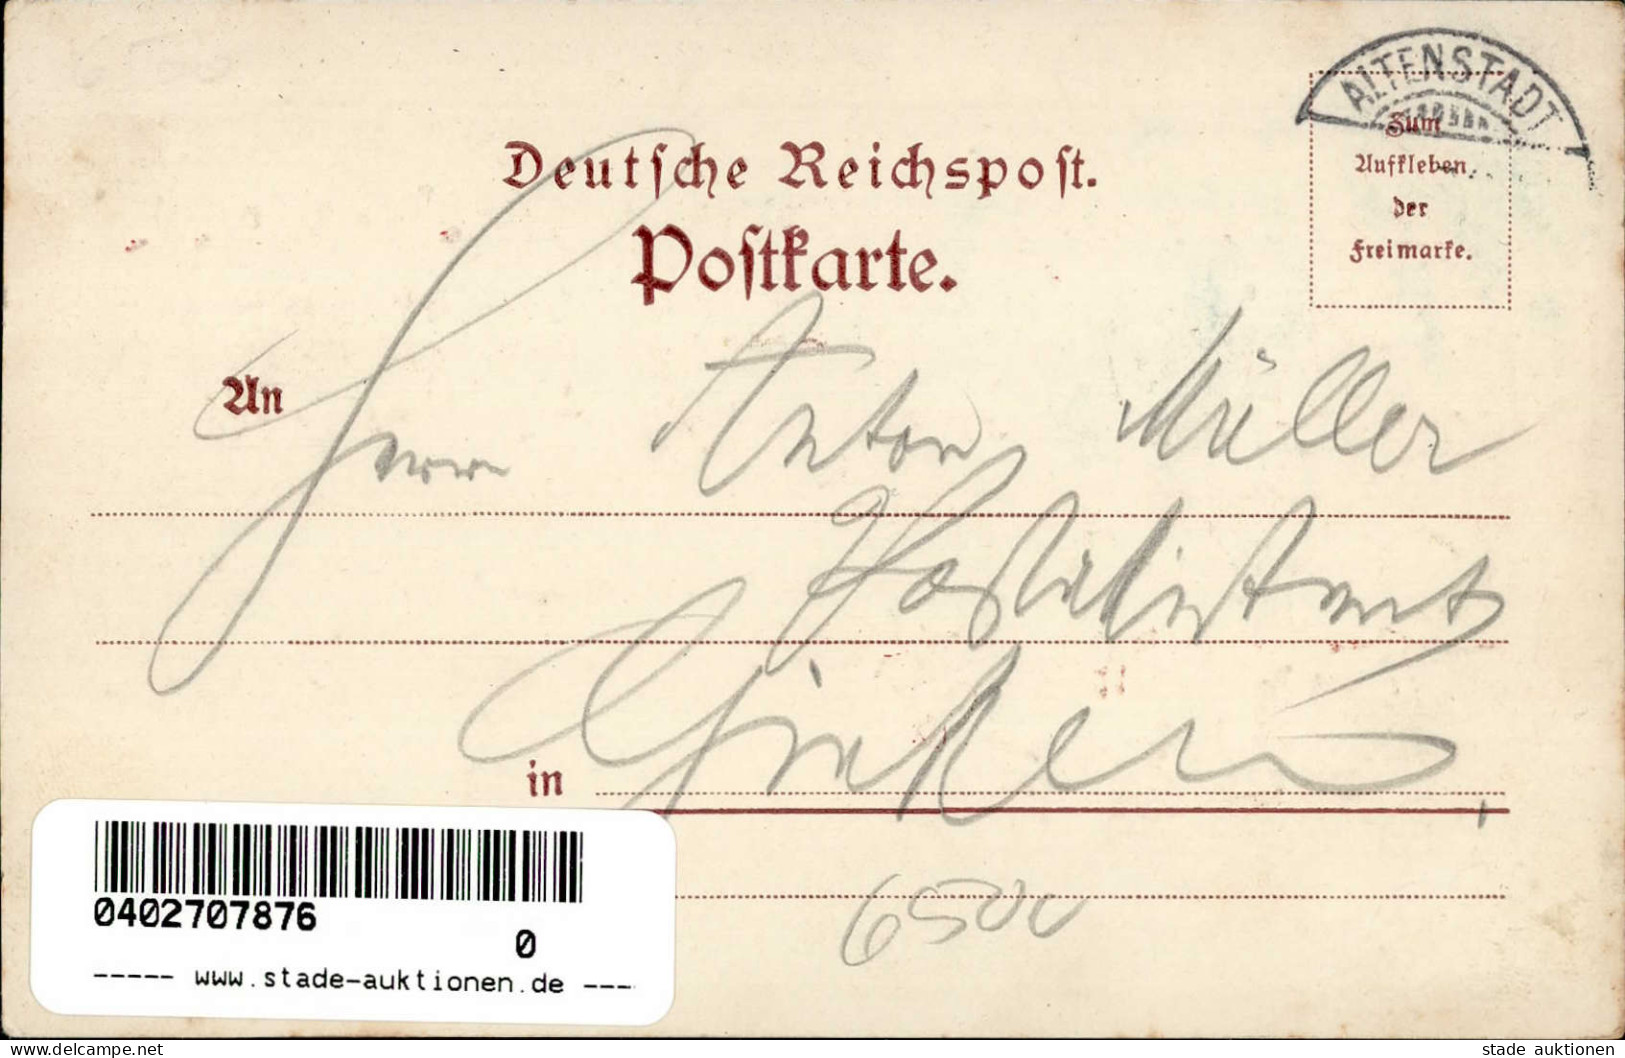 ALTENSTADT
Deutsche Reichspost.
Postkarte.
Zum
Aufkleben
der
Freimarke.
An
Herrn Anton Müller
in
6500
0402707876
0
----- www.stade-auktionen.de ---
www.delcampe.net
stade auktionen